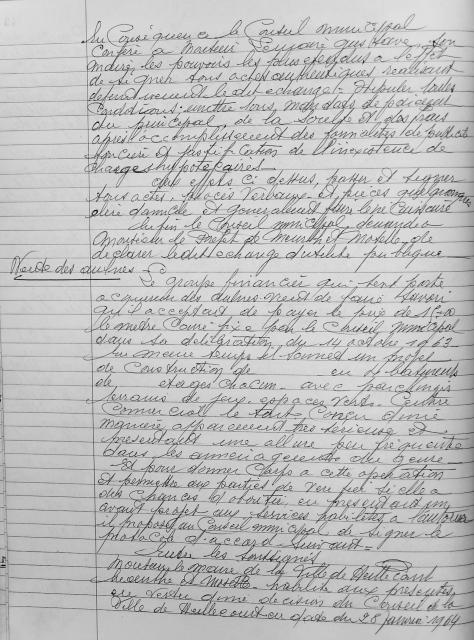 En Conséquence le Conseil municipal
Confère à Monsieur Lemaire Gustave, Son
maire, les pouvoirs les plus étendus à l'effet
de signer tous actes authentiques réalisant
définitivement ledit échange - stipuler toutes
Conditions: émettre tous mandats de paiement
du principal, de la Soulte et des frais
après accomplissement des formalités de publicité
foncière et justification de l'inexistence de
charges hypothécaires
Aux effets Ci dessus, passer et signer
tous actes, procès verbaux et pièces, élire
domicile et généralement faire le nécessaire
Enfin le Conseil municipal demande à
Monsieur le Préfet de Meurthe et Moselle, de
déclarer ledit échange d'utilité publique
Vente des dunes Le groupe financier qui s'est porté
acquéreur des dunes vient de faire savoir
qu'il acceptait de payer le prix de 1F00
le mètre Carré fixé par le Conseil municipal
dans sa délibération du 14 octobre 1963
En même temps il soumet un projet
de Construction de en bâtiments
de étages chacun - avec parkings
terrains de jeux - espaces verts - Centre
Commercial le tout Conçu d'une
manière apparemment très sérieuse et
présentant une allure peu fréquente
dans les aménagements du genre -
Et pour donner Corps à cette opération
et permettre aux parties de voir si elle a
des chances d'aboutir, en présentant un
avant projet aux services habilités à l'autoriser
il propose au Conseil municipal de signer le
protocole d'accord suivant -
Entre les soussignés
Monsieur le maire de la Ville de Heillecourt
Meurthe et Moselle habilité aux présentes
en vertu d'une décision du Conseil de la
Ville de Heillecourt en date du 28 janvier 1964